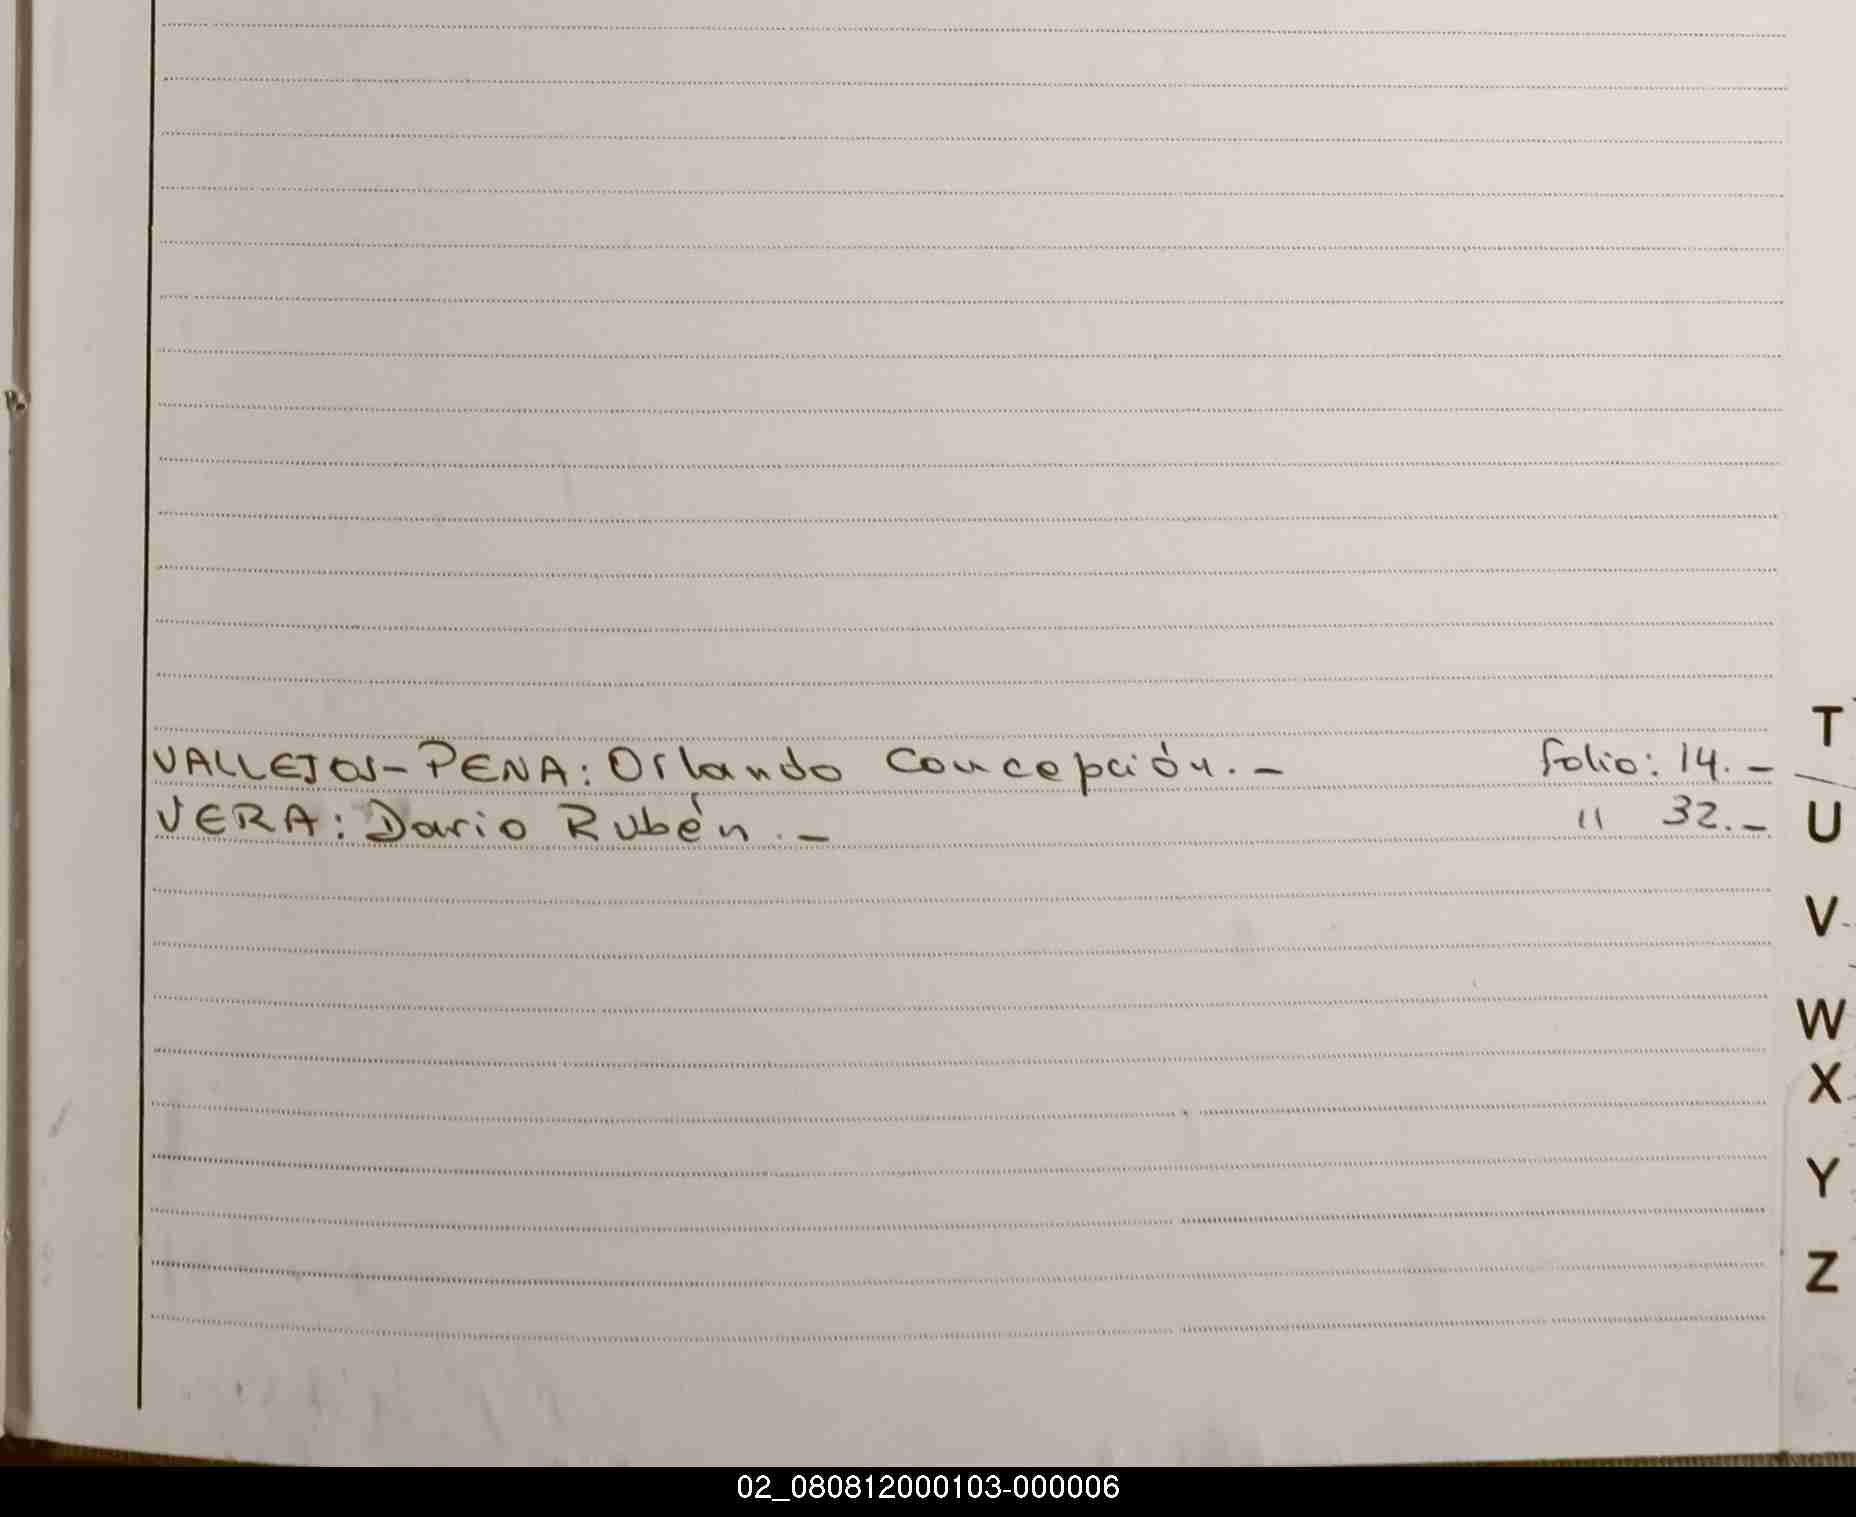 VALLEJOS-PENA: Orlando Concepción.- folio: 14.-
VERA: Dario Rubén.- " 32.-
T
U
V
W
X
Y
Z
02_080812000103-000006